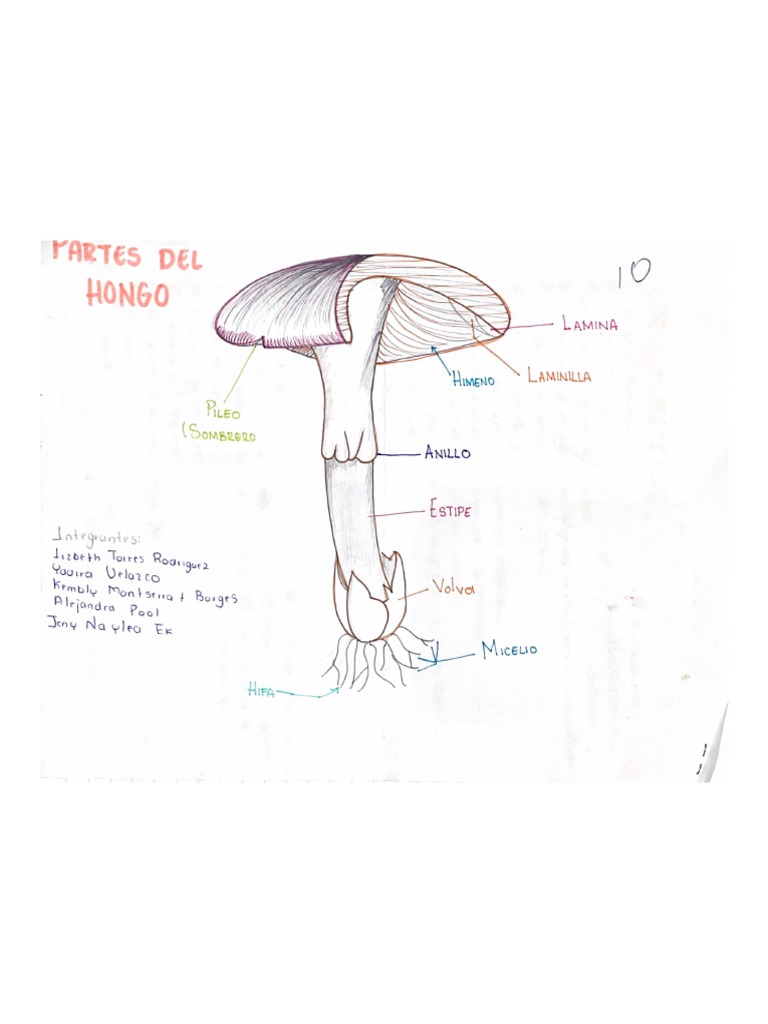 PARTES DEL
HONGO
10
LAMINA
LAMINILLA
HIMENO
PILEO
(SOMBRERO
ANILLO
ESTIPE
Integrantes:
Lizbeth Torres Rodriguez
Yadira Velazco
Kembly Montserrat Borges
Alejandra Pool
Jeny Naylea Ek
Volva
MICELIO
HIFA